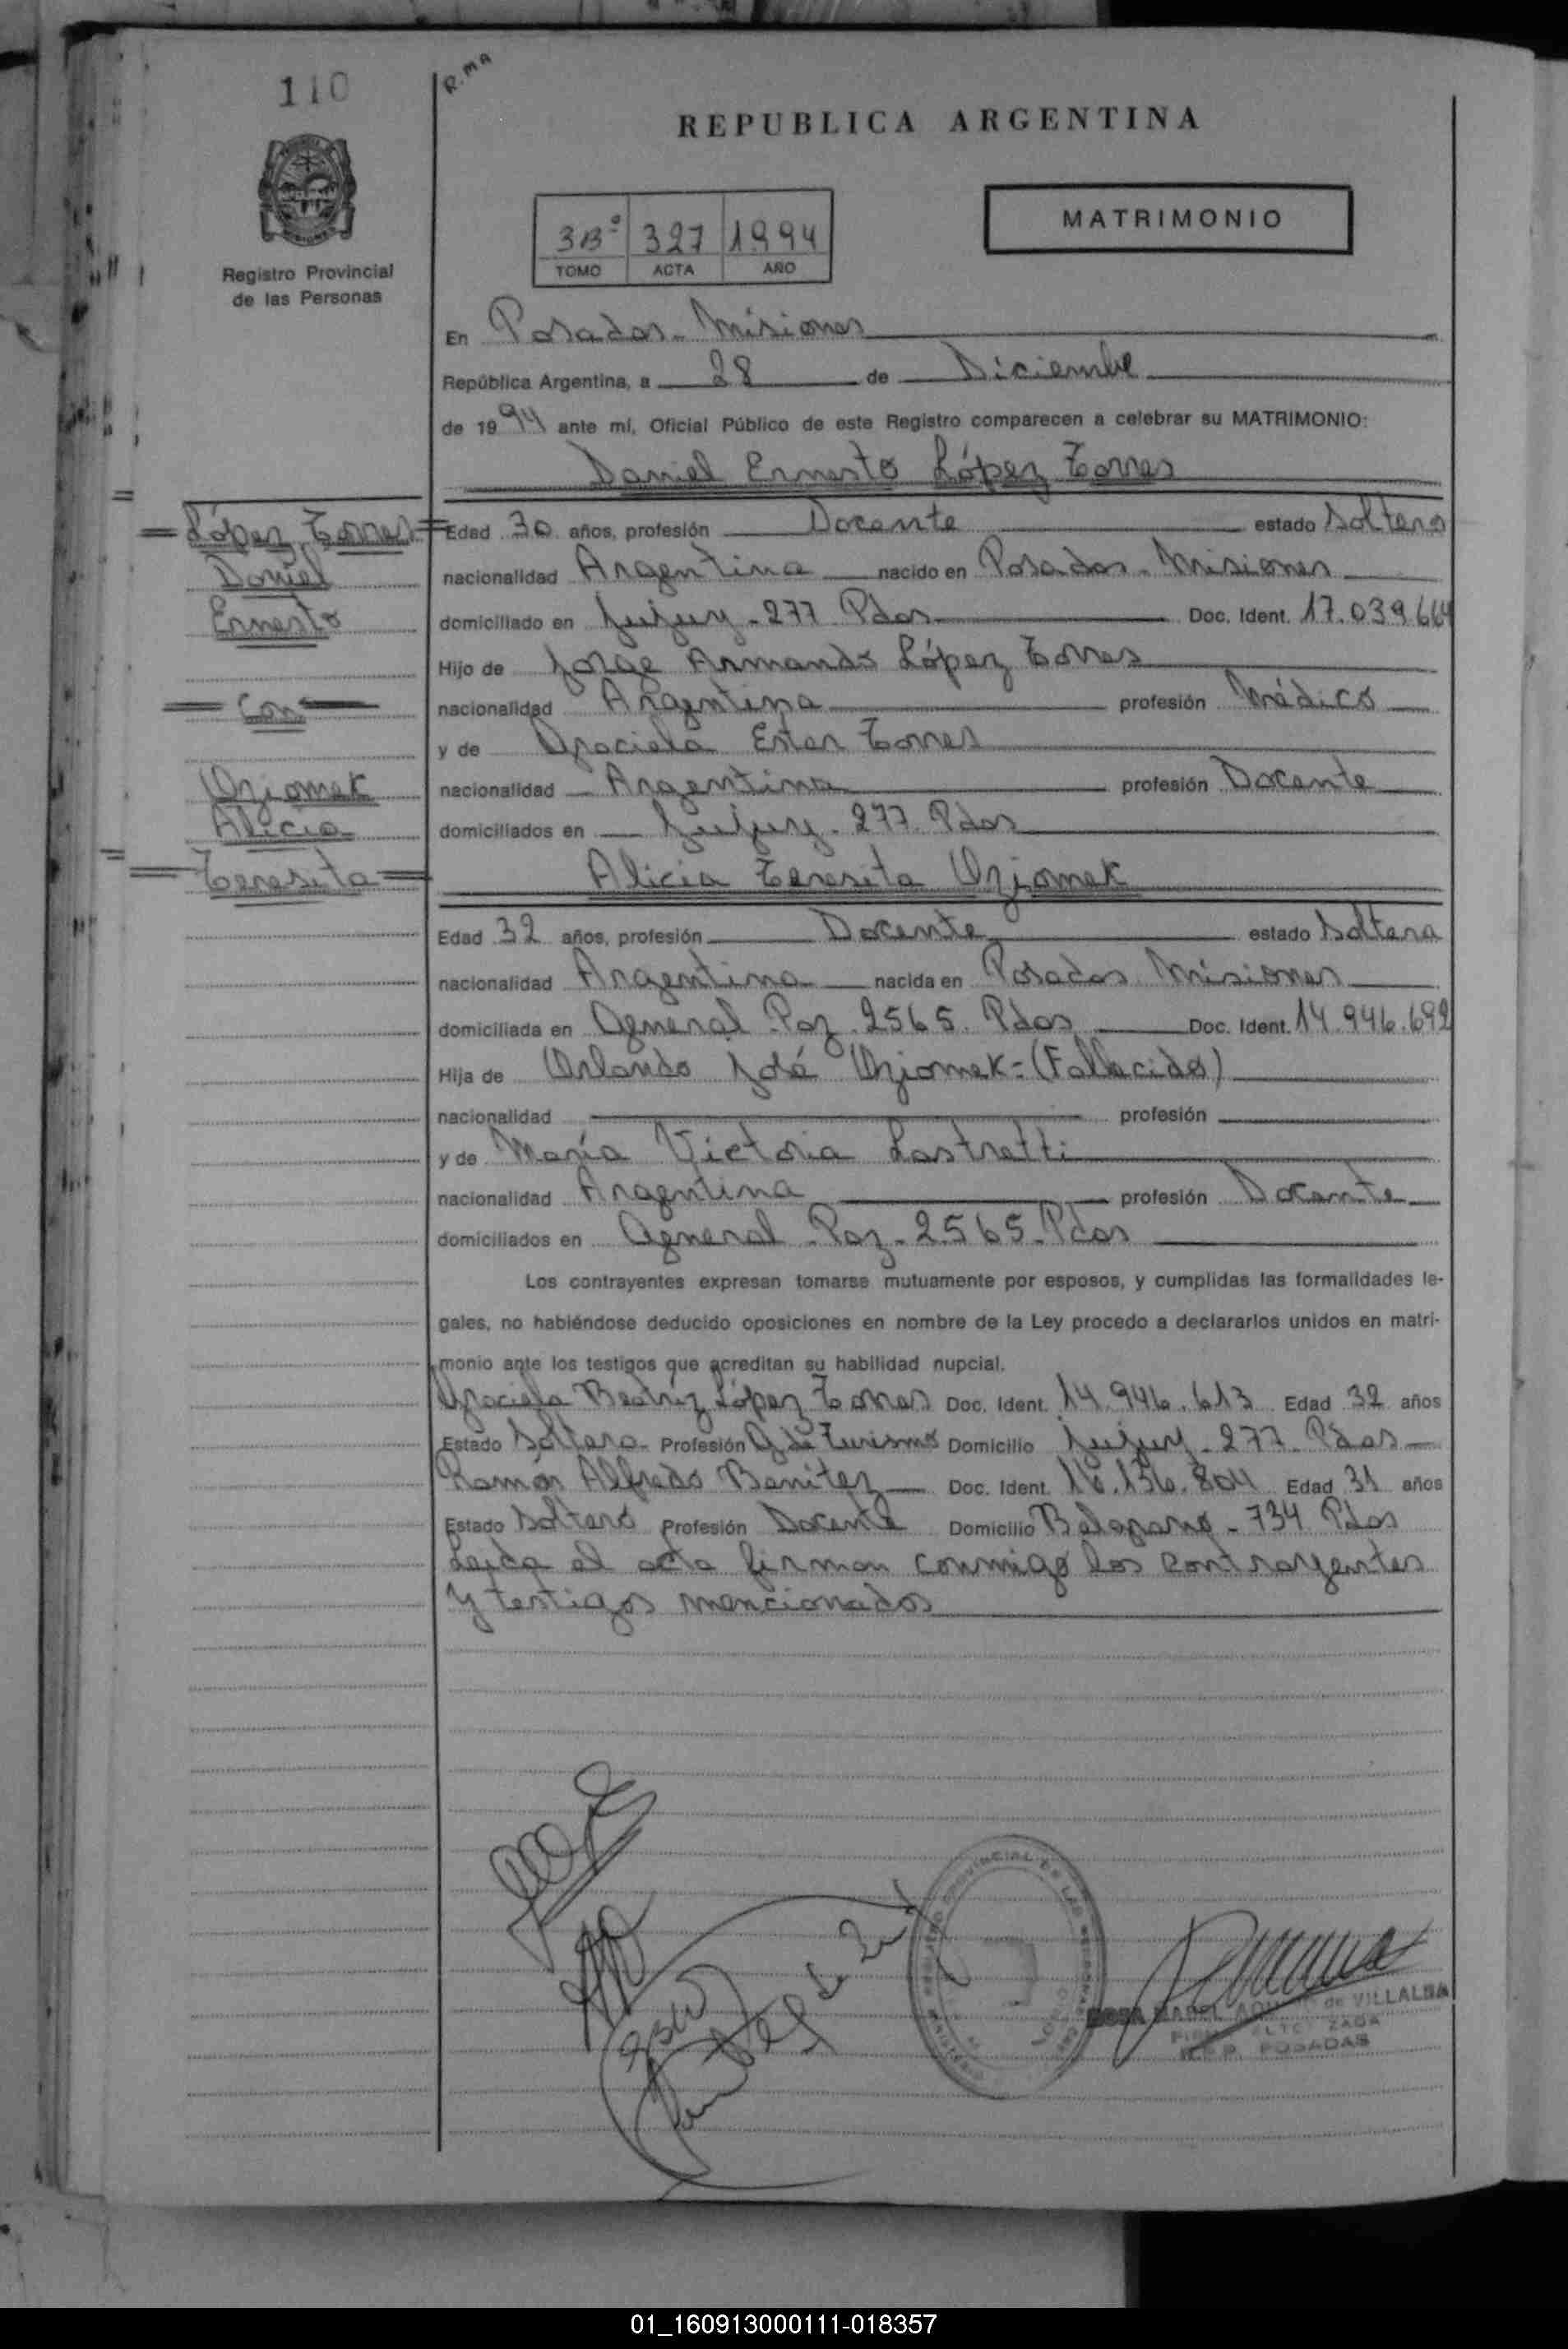 110
R.MA
REPUBLICA ARGENTINA
MATRIMONIO
3Bº 327 1994
TOMO ACTA AÑO
Registro Provincial
de las Personas
En Posadas - Misiones
República Argentina, a 28 de Diciembre
de 1994 ante mí, Oficial Público de este Registro comparecen a celebrar su MATRIMONIO:
Daniel Ernesto López Torres
López Torres
Daniel
Ernesto
Con
Alicia
Teresita
Edad 30 años, profesión Docente estado Soltero
nacionalidad Argentina nacido en Posadas - Misiones
domiciliado en Jujuy - 277 Pdas Doc. Ident. 17.039.664
Hijo de Jorge Armando López Torres
nacionalidad Argentina profesión Médico
y de Graciela Ester Torres
nacionalidad Argentina profesión Docente
domiciliados en Jujuy - 277 Pdas
Alicia Teresita
Edad 32 años, profesión Docente estado Soltera
nacionalidad Argentina nacida en Posadas Misiones
domiciliada en General Paz 2565 Pdas Doc. Ident. 14.946.692
Hija de Orlando José (Fallecido)
nacionalidad profesión
y de María Victoria Lastretti
nacionalidad Argentina profesión Docente
domiciliados en General Paz - 2565 - Pdas
Los contrayentes expresan tomarse mutuamente por esposos, y cumplidas las formalidades le-
gales, no habiéndose deducido oposiciones en nombre de la Ley procedo a declararlos unidos en matri-
monio ante los testigos que acreditan su habilidad nupcial.
Graciela Beatríz López Torres Doc. Ident. 14.946.613 Edad 32 años
Estado Soltera Profesión G de Turismo Domicilio Jujuy - 277 Pdas
Ramón Alfredo Benitez Doc. Ident. 16.136.804 Edad 31 años
Estado Soltero Profesión Docente Domicilio Belgrano - 734 Pdas
Leida el acta firman conmigo los contrayentes
y testigos mencionados
de VILLALBA
R.P.P. POSADAS
01_160913000111-018357